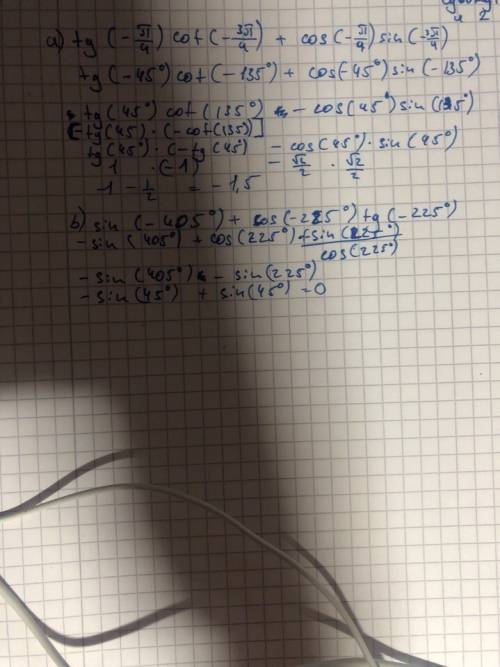 a) tg (-π/4) cot (-3π/4) + cos (-π/4) sin (-3π/4)
tg (-45°) cot (-135°) + cos(-45°) sin (-135°)
tg (45°) cot (135°) - cos(45°) sin (135°)
[-tg(45) · (-cot(135))]
tg(45°) · (-tg(45°) - cos(45°) · sin (45°)
1 · (-1) - √2/2 · √2/2
-1 - 1/2 = -1,5
b) sin (-405°) + cos(-225°) tg (-225°)
-sin (405°) + cos(225°) -sin(225°)/cos(225°)
-sin (405°) - sin(225°)
-sin(45°) + sin(45°) = 0